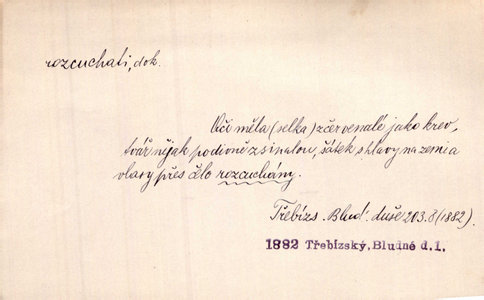 rozcuchati, dok.
Oči měla (selka) zčervenalé jako krev,
tvář nějak podivně zsinalou, šátek s hlavy na zemi a
vlasy přes čelo rozcuchány.
Třebízs. Bludˇ. duše 203.8 (1882).
1882 Třebízský, Bludné d.1.